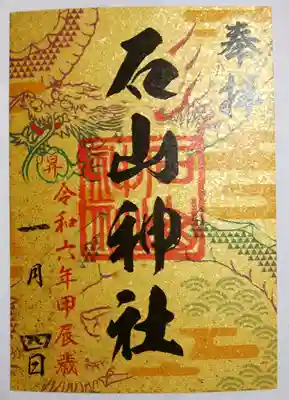 奉拝
石山神社
昇
令和六年甲辰歳
一月 四日